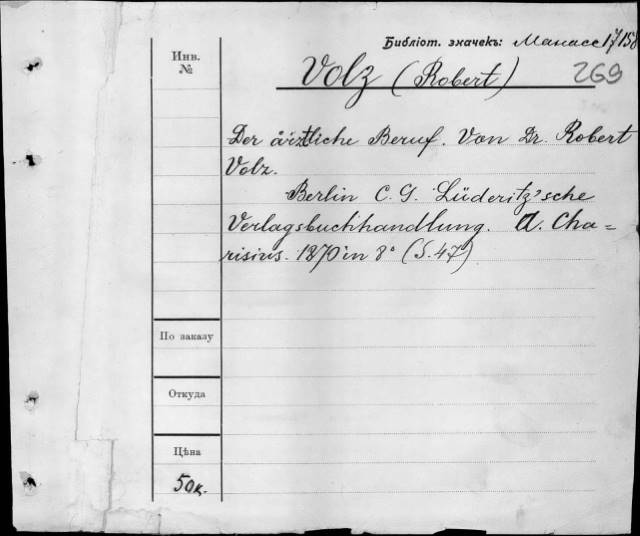 Библіот. значекъ: Манасс 17158
Инв.
№
Volz (Robert)
269
Der ärztliche Beruf. Von Dr. Robert
Volz.
Berlin C. G. Lüderitz'sche
Verlagsbuchhandlung. A. Cha=
risius. 1870 in 8° (S. 47)
По заказу
Откуда
Цѣна
50к.